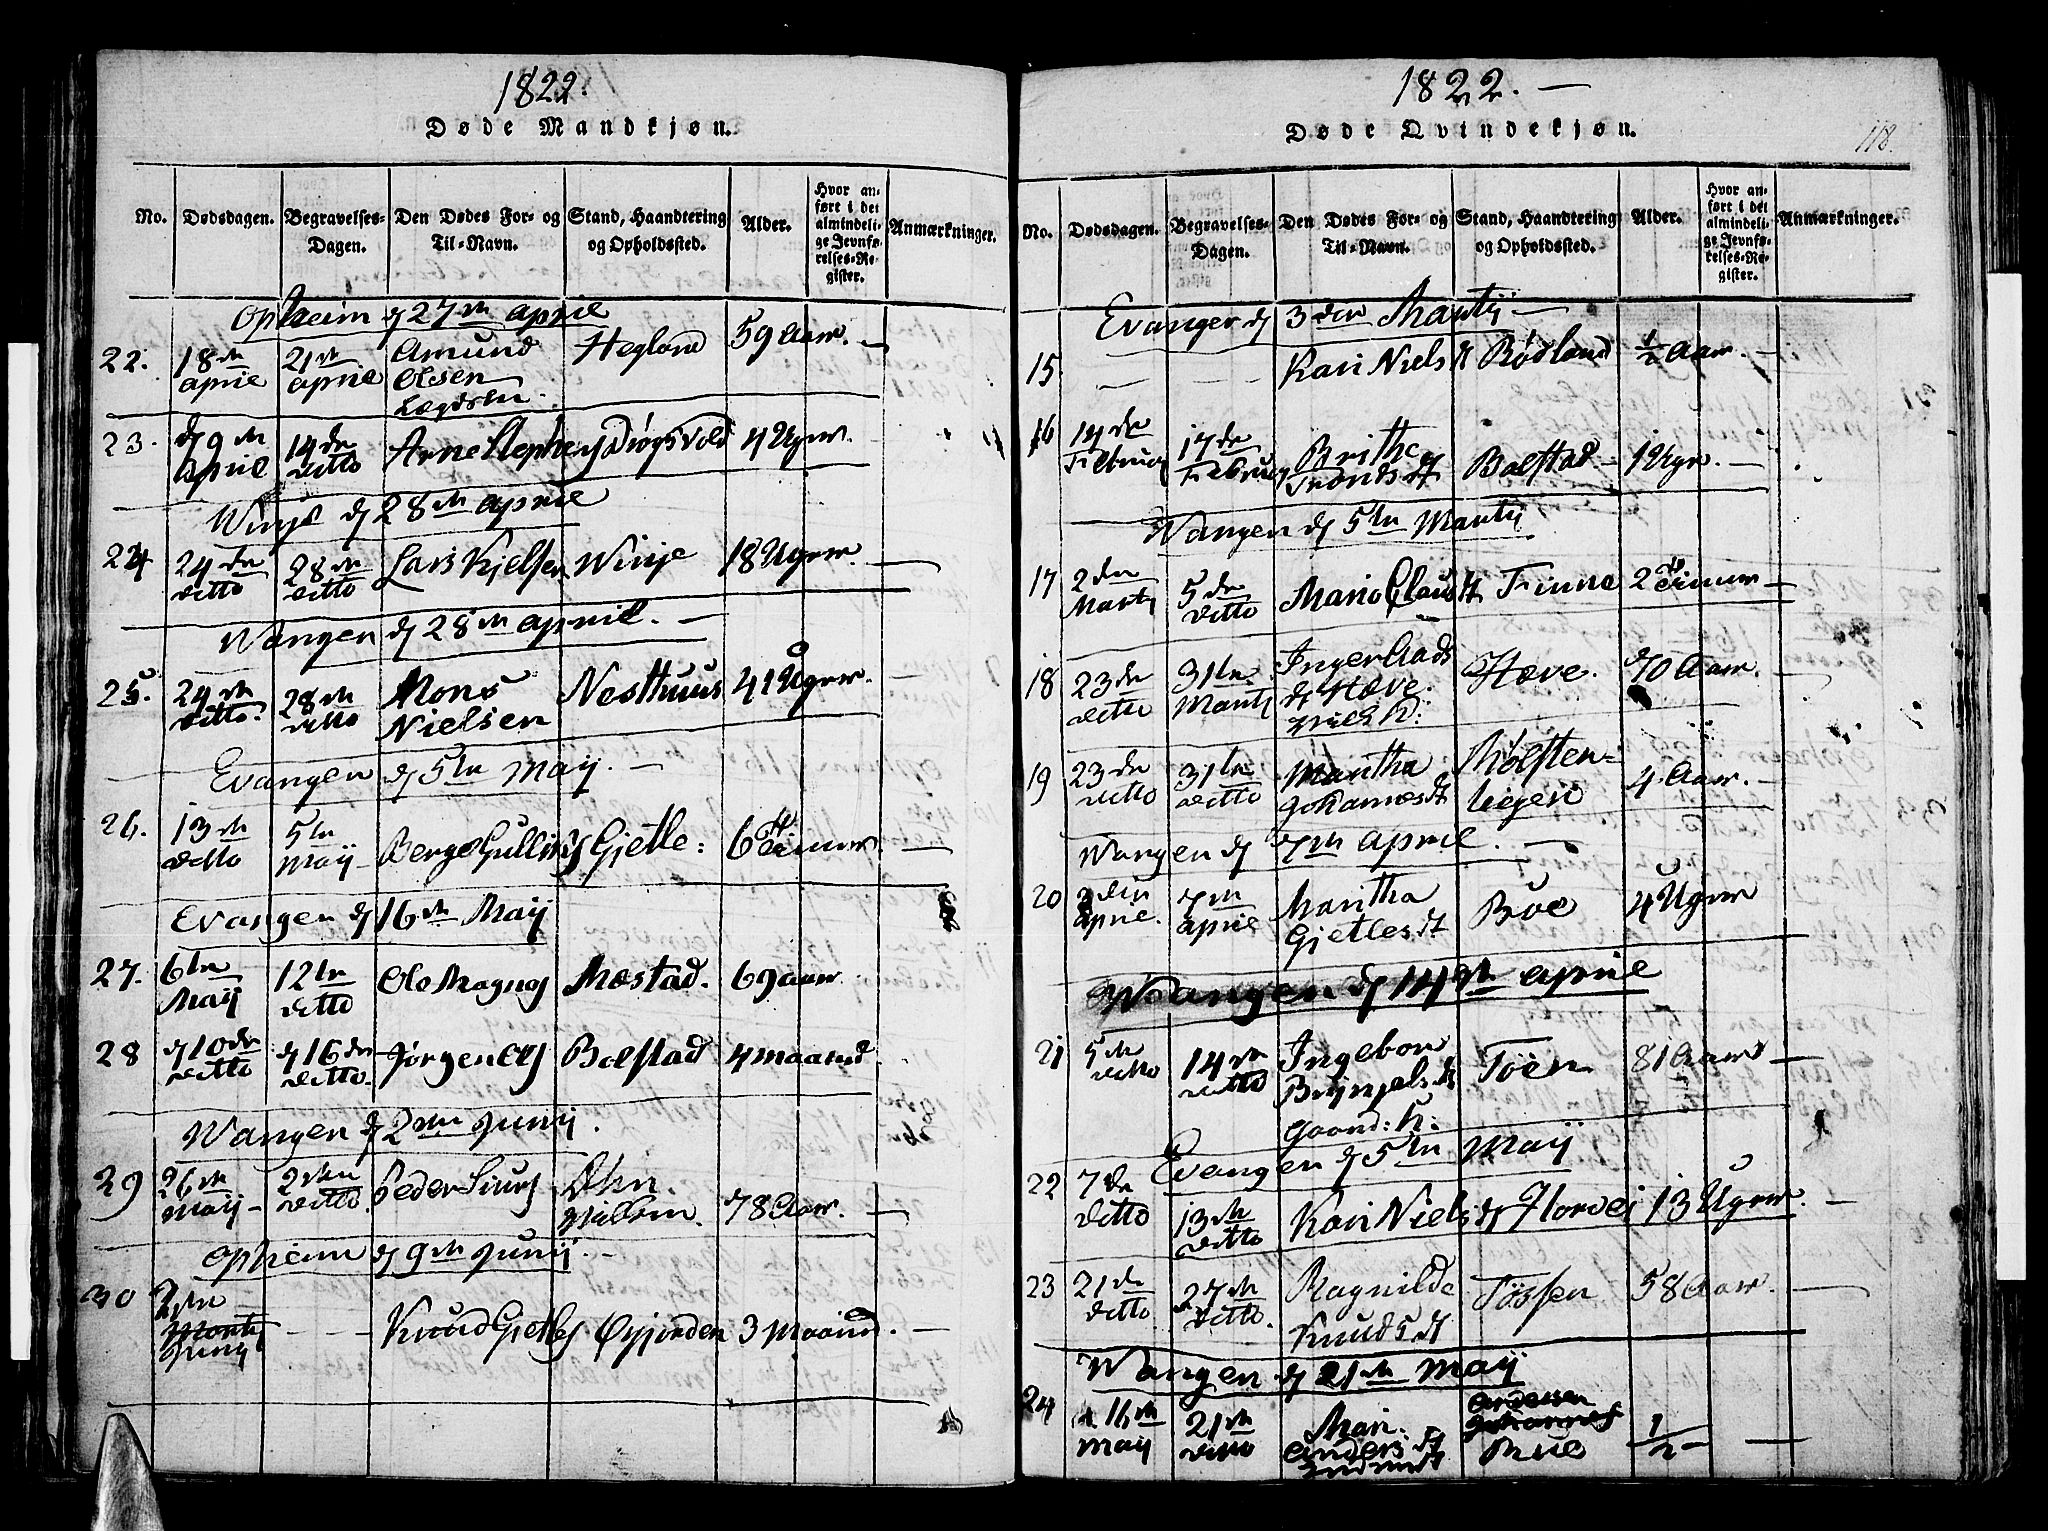 1822.
Døde Mandkjøn.
No. Dødsdagen. Begravelses-Dagen. Den Dødes For- og Til-Navn. Stand, Haandtering og Opholdssted. Alder. Hvor anført i det almindelige Jevnførelses-Register. Anmærkninger.
Opheim d 27de april
22. 18de april 21de april Amund Olsen Hegland 59 Aar. —
23. d 9de april 14de ditto Arne Stephens 4 Uger.
Winje d 28de april
24 24de ditto 28de ditto Lars Kjelsen Winje 18 Uger. —
Wangen d 28de april. —
25. 24de ditto. 28de ditto Mons Nielsen Nesthuus 41 Uger. —
Evangen d 5te Maij. —
26. 13de ditto 5te Maij Berge Gullis Gjetle: 6 Timer. —
Evangen d 16de Maij
27. 6te Maij 12te ditto Ole Magnes Mæstad. 69 aar
28 d 10de ditto d 16de ditto. Jørgen Ols Bolstad 4 maaned
Wangen d 2den Junij.
29 26de Maij — 2den ditto. Peder Siurs 78 Aar. —
Opheim d 9de Junij. —
30 2den Junij — — — Knud Gjetles Øyjorden 3 Maaned. —
1822. —
118.
Døde Qvindekjøn.
No. Dødsdagen. Begravelses-Dagen. Den Dødes For- og Til-Navn. Stand, Haandtering og Opholdssted. Alder. Hvor anført i det almindelige Jevnførelses-Register. Anmærkninger.
Evanger d 3den Martij —
15 — — — Kari Niels dt Rødland ½ Aar. —
16 14de Februarj 17de Februarj Britha Tronds dt Bolstad 1 Uger. —
Wangen d 5te Martij
17 2den Martj 5de ditto Mari Claus dt Finne 2 Timer —
18 23de ditto 31te Martj Inger Aads dt Hæve. Hæve. 70 Aar.
19 23de ditto 31te ditto Martha Johannes dt Mølster- 4 Aar. —
Wangen d 7de april. —
20 3den april. 7de april Maritha Gjetles dt Bøe 4 Uger
Wangen d 14de april
21 5te ditto 14de ditto Ingebor Brynjels dt Gaard: K: Tøen 81 Aar —
Evangen d 5te Maij
22 7de ditto 13de ditto Kari Niels dt Horvei 13 Uger.
23 21de ditto 27de ditto. Ragnilde Knuds dt 58 Aar. —
Wangen d 21de Maij
24 16de Maij 21de ditto Mari Anders dt Rue ½ —